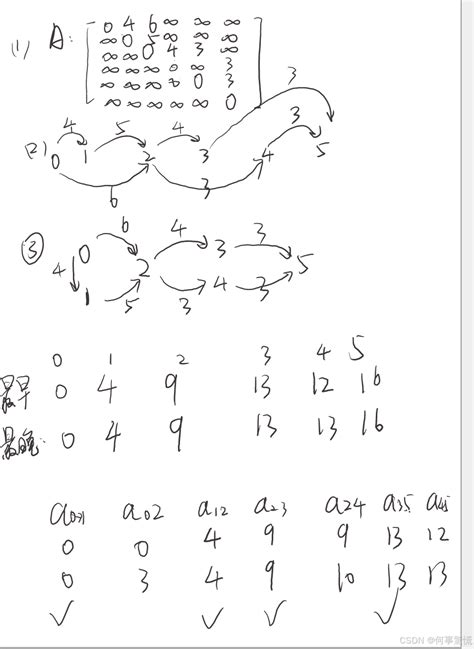 (1) A:
0 4 6 ∞ ∞ ∞
∞ 0 5 ∞ ∞ ∞
∞ ∞ 0 4 3 ∞
∞ ∞ ∞ 0 ∞ 3
∞ ∞ ∞ ∞ 0 3
∞ ∞ ∞ ∞ ∞ 0
3
4 5 4 3
(2) 0 1 2 3 4 5
6 3
6 4 3
③ 0 3
4 2 5
1 4
5 3 3
0 1 2 3 4 5
最早 0 4 9 13 12 16
最晚: 0 4 9 13 13 16
a01 a02 a12 a23 a24 a35 a45
0 0 4 9 9 13 12
0 3 4 9 10 13 13
✓ ✓ ✓ ✓
CSDN @何事惊慌